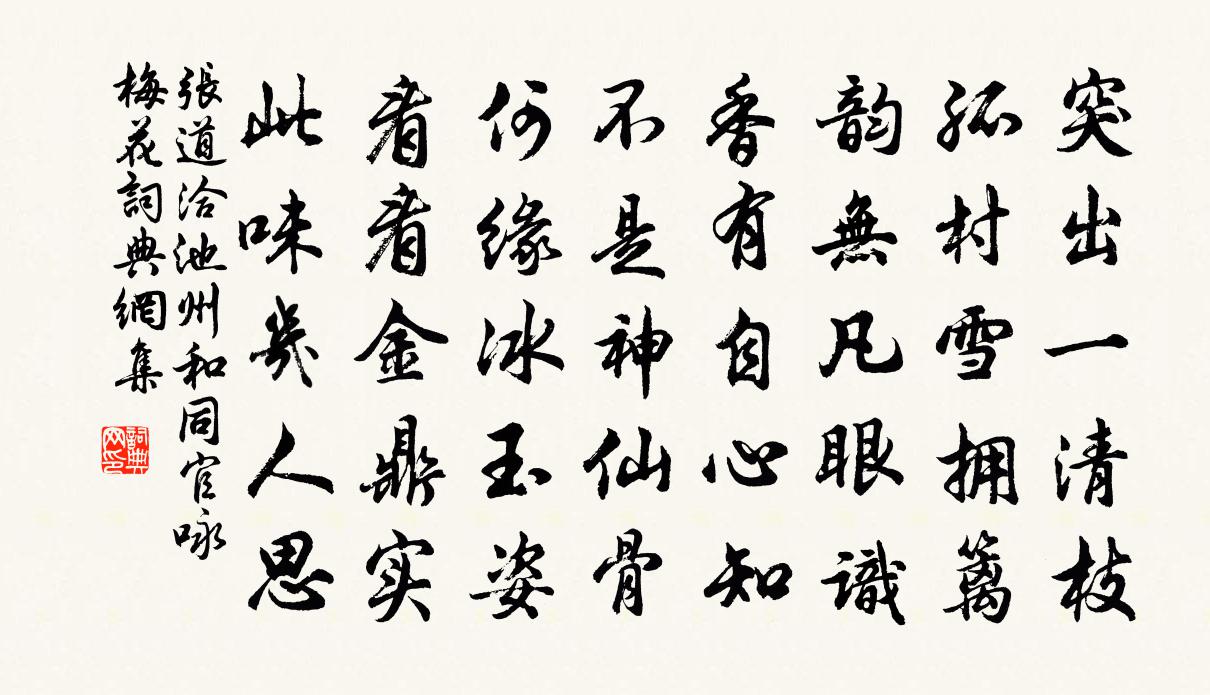 突出一清枝
孤村雪拥篱
韵無凡眼識
香有自心知
不是神仙骨
何缘冰玉姿
看看金鼎实
此味幾人思
張道洽池州和同官咏
梅花詞典網集
詞典
网印